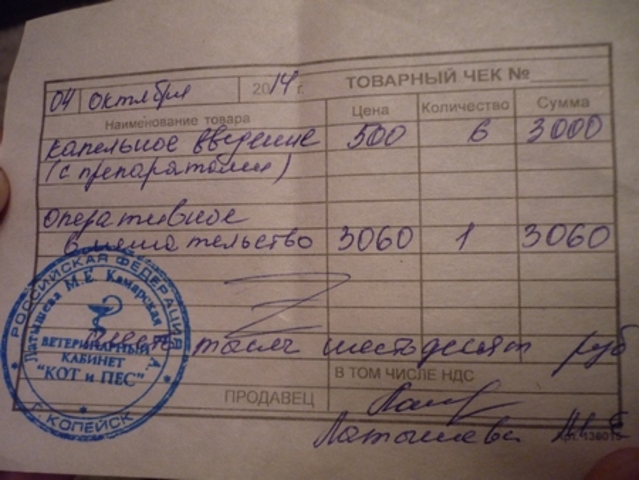 ТОВАРНЫЙ ЧЕК №
04 октября 2014 г.
Наименование товара Цена Количество Сумма
капельное введение 500 6 3000
(с препаратами)
оперативное
вмешательство 3060 1 3060
тысяч шестьдесят руб
В ТОМ ЧИСЛЕ НДС
ПРОДАВЕЦ
Латышева М. Е
РОССИЙСКАЯ ФЕДЕРАЦИЯ
Латышева М.Е Камарская А.
ВЕТЕРИНАРНЫЙ
КАБИНЕТ
"КОТ и ПЕС"
Г. КОПЕЙСК